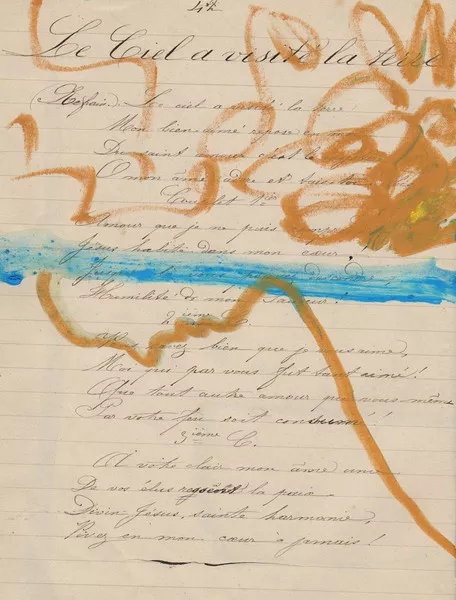 42
Le Ciel a visité la terre
(Refrain). Le ciel a visité la terre!
Mon bien-aimé repose en m
Du saint amour c'est le
O mon âme adore et tais-to
Couplet 1er
Amour que je ne puis
Jésus habite dans mon cœur
Humilité de mon Sauveur!
2ième C.
Vous savez bien que je suis vame,
Moi qui par vous fut tant aimé!
Que tout autre amour que vous même
Par votre feu soit consumé!
3ième C.
A votre clair mon âme unie
De vos élus reçoit la paix
Divin Jésus, sainte harmonie,
Vivez en mon cœur à jamais!